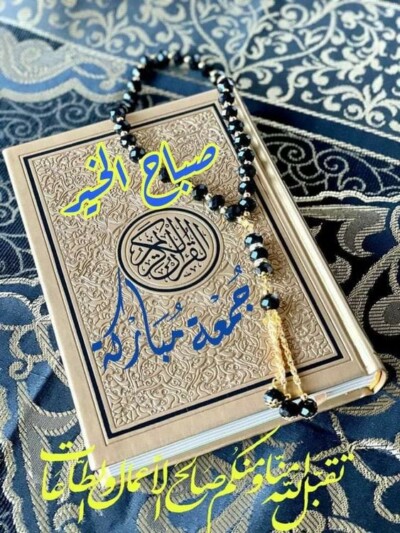 صباح الخير
القرآن الكريم
جُمعَة مُبَارَكة
تقبل الله منا ومنكم صالح الأعمال والطاعات